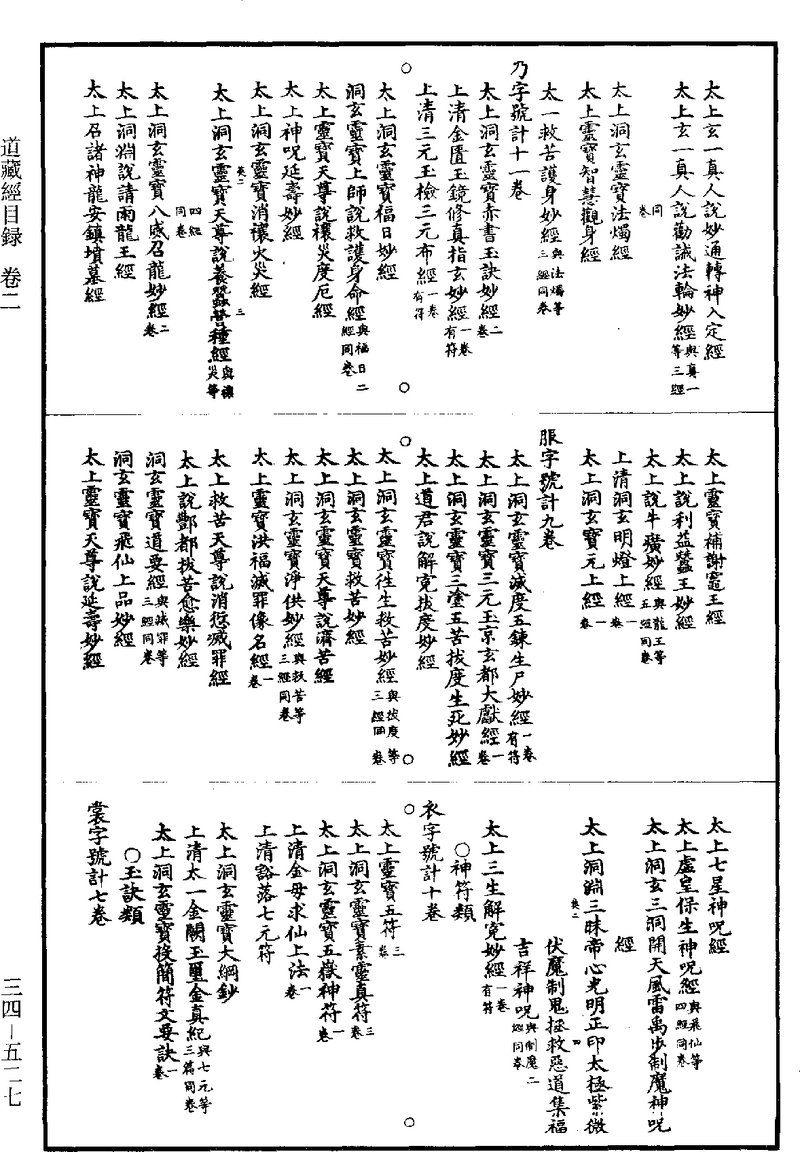 太上玄一真人說妙通轉神入定經
太上玄一真人說勸誡法輪妙經與真一等三經同卷
太上洞玄靈寶法燭經
太上靈寶智慧觀身經
太一救苦護身妙經與法燭等三經同卷
乃字號計十一卷
太上洞玄靈寶赤書玉訣妙經二卷
上清金匱玉鏡修真指玄妙經一卷有符
上清三元玉檢三元布經一卷有符
太上洞玄靈寶福日妙經
洞玄靈寶上師說救護身命經與福日二經同卷
太上靈寶天尊說禳災度厄經
太上神呪延壽妙經
太上洞玄靈寶消禳火災經
英二 三
太上洞玄靈寶天尊說養蠶營種經與禳災等四經同卷
太上洞玄靈寶八威召龍妙經二卷
太上洞淵說請雨龍王經
太上召諸神龍安鎮墳墓經
太上靈寶補謝竈王經
太上說利益蠶王妙經
太上說牛㿈妙經與龍王等五經同卷
上清洞玄明燈上經一卷
太上洞玄寶元上經一卷
服字號計九卷
太上洞玄靈寶滅度五鍊生尸妙經一卷有符
太上洞玄靈寶三元玉京玄都大獻經一卷
太上洞玄靈寶三塗五苦拔度生死妙經
太上道君說解冤拔度妙經
太上洞玄靈寶往生救苦妙經與拔度等三經同卷
太上洞玄靈寶救苦妙經
太上洞玄靈寶天尊說濟苦經
太上洞玄靈寶淨供妙經與救苦等三經同卷
太上靈寶洪福滅罪像名經一卷
太上救苦天尊說消愆滅罪經
太上說酆都拔苦愈樂妙經
洞玄靈寶道要經與滅罪等三經同卷
洞玄靈寶飛仙上品妙經
太上靈寶天尊說延壽妙經
太上七星神呪經
太上虛皇保生神呪經與飛仙等四經同卷
太上洞玄三洞開天風雷禹步制魔神呪
經
太上洞淵三昧帝心光明正印太極紫微
英二 四
伏魔制鬼拯救惡道集福
吉祥神呪與制魔二經同卷
太上三生解冤妙經一卷有符
○神符類
衣字號計十卷
太上靈寶五符三卷
太上洞玄靈寶素靈真符三卷
太上洞玄靈寶五嶽神符一卷
上清金母求仙上法一卷
上清豁落七元符
太上洞玄靈寶大綱鈔
上清太一金闕玉璽金真紀與七元等三篇同卷
太上洞玄靈寶投簡符文要訣一卷
○玉訣類
裳字號計七卷
道藏經目録 卷二
三四—五二七